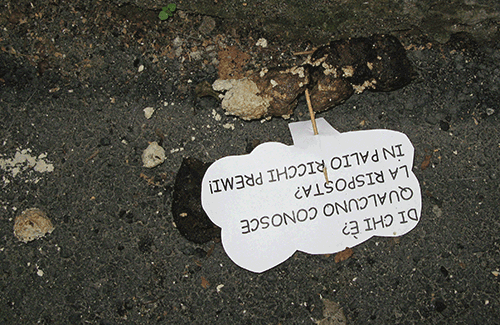 DI CHI È?
QUALCUNO CONOSCE
LA RISPOSTA?
IN PALIO RICCHI PREMI!